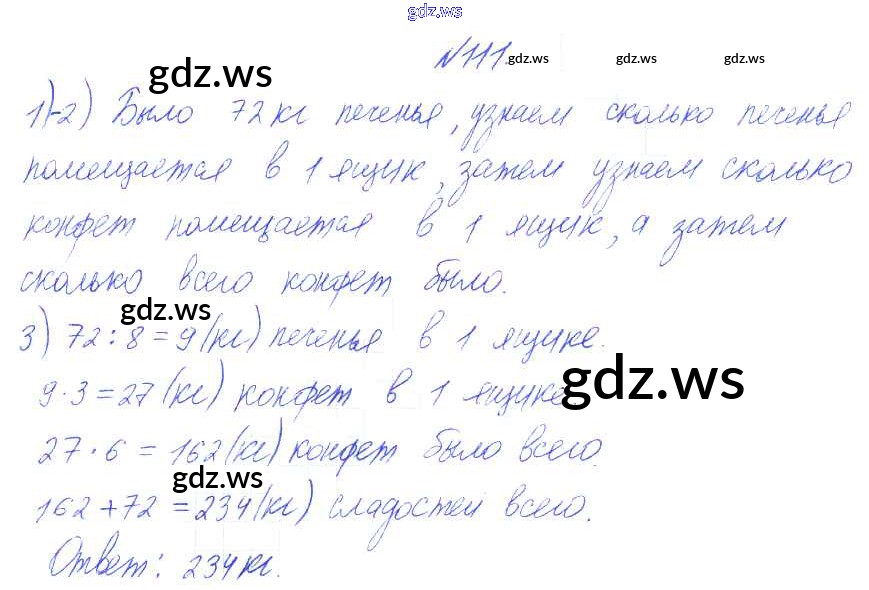 gdz.ws
№111.
gdz.ws gdz.ws gdz.ws gdz.ws
1)-2) Было 72 кг печенья, узнаем сколько печенья
помещается в 1 ящик, затем узнаем сколько
конфет помещается в 1 ящик, а затем
сколько всего конфет было.
gdz.ws
3) 72 : 8 = 9 (кг) печенья в 1 ящике.
9 · 3 = 27 (кг) конфет в 1 ящике.
gdz.ws
27 · 6 = 162 (кг) конфет было всего.
gdz.ws
162 + 72 = 234 (кг) сладостей всего.
Ответ: 234 кг.